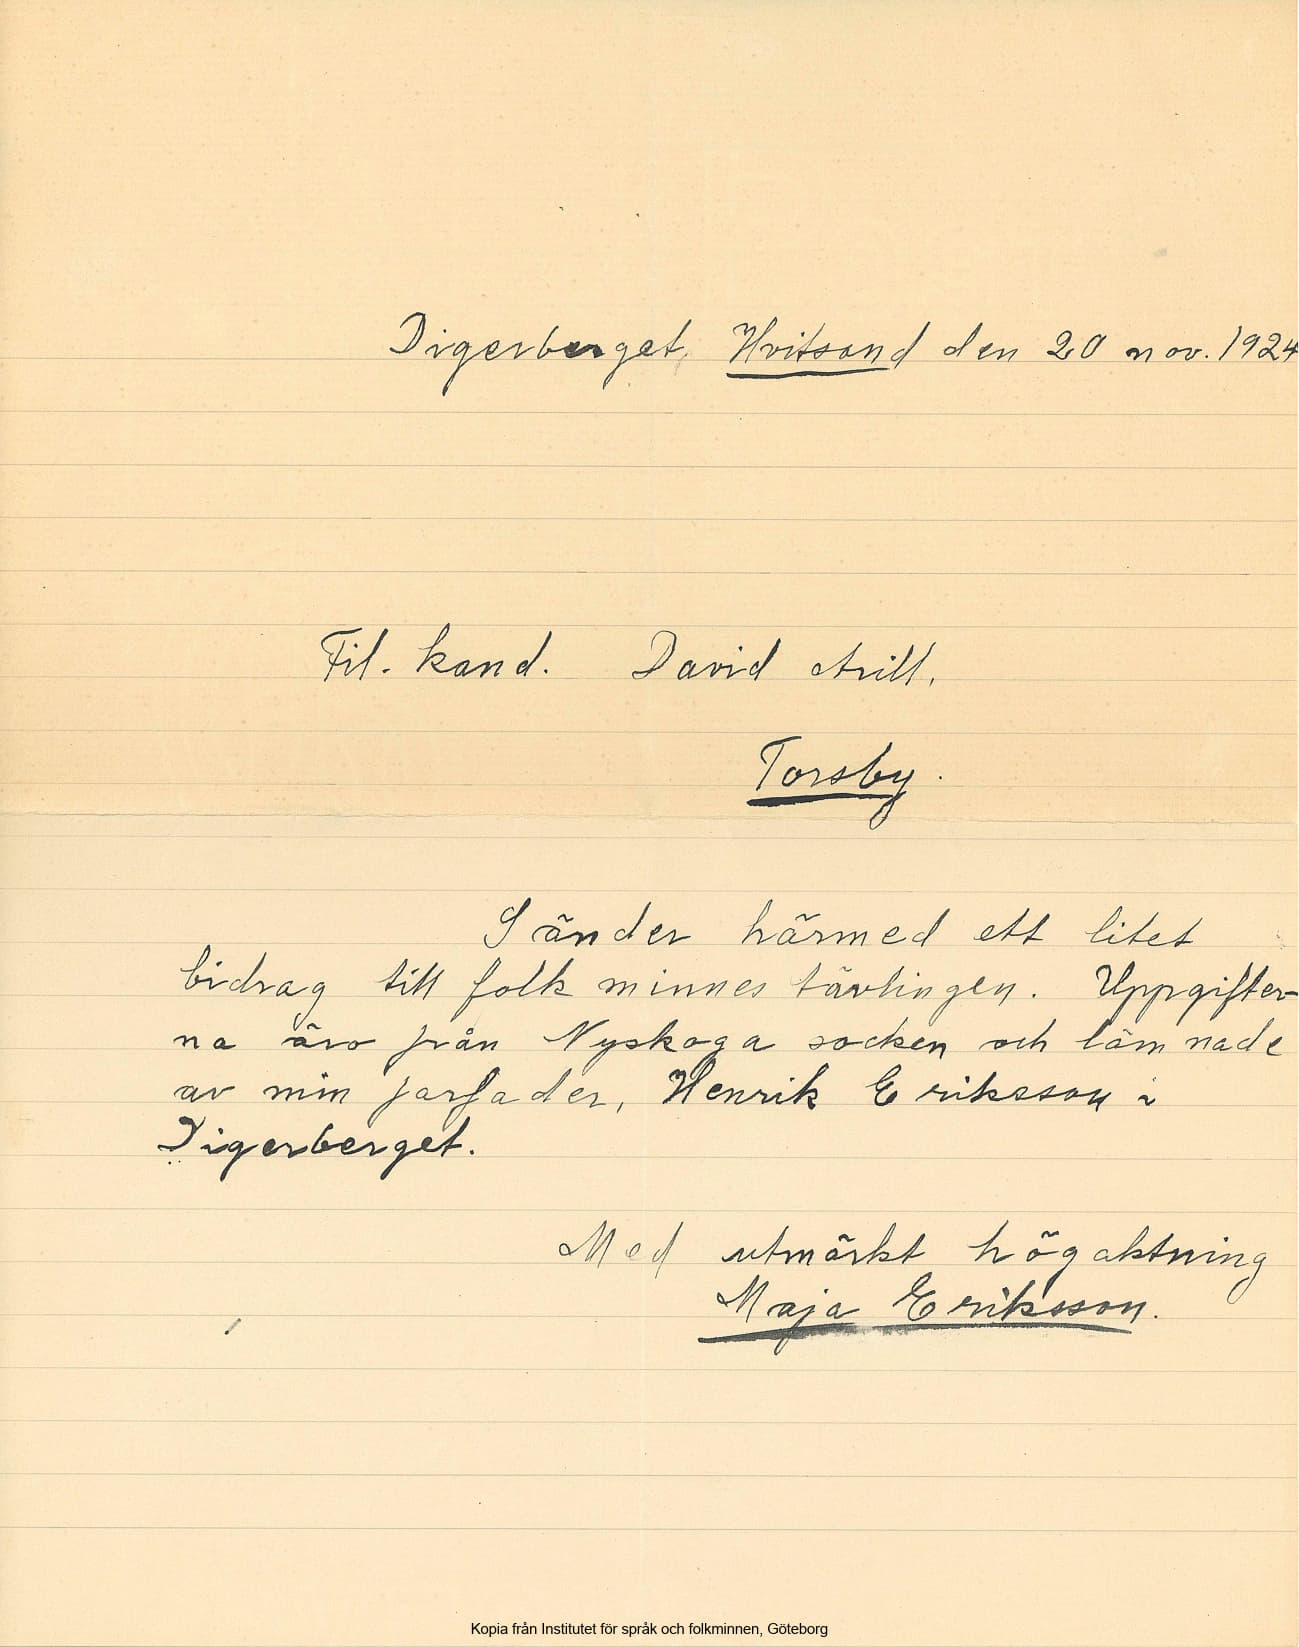 Digerberget, Hvitsand den 20 nov. 1924
Fil. kand. David Arill.
Torsby.
Sänder härmed ett litet
bidrag till folkminnestävlingen. Uppgifter-
na äro från Nyskoga socken och lämnade
av min farfader, Henrik Eriksson i
Digerberget.
Med utmärkt högaktning
Maja Eriksson.
Kopia från Institutet för språk och folkminnen, Göteborg